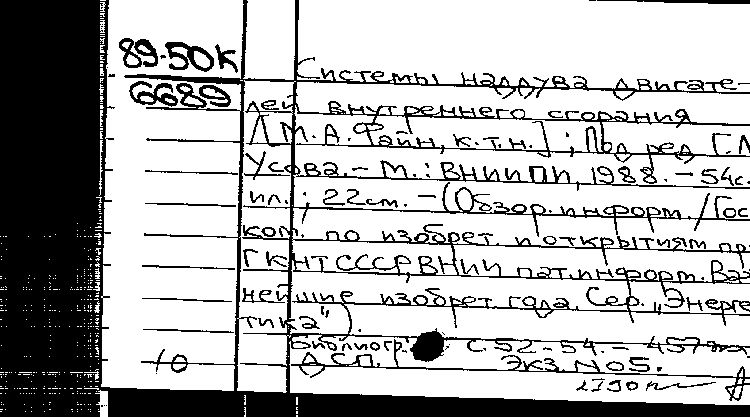 89-50К
6689
Системы наддува двигате-
лей внутреннего сгорания
/[М.А. Файн, к.т.н.]; Под ред Г.М
Усова. - М.: ВНИИПИ, 1988. - 54с.
ил.; 22см. - (Обзор. информ. / Гос
ком. по изобрет. и открытиям пр
ГКНТ СССР, ВНИИ пат. информ. Важ
нейшие изобрет. года. Сер. "Энерге
тика").
Библиогр. с. 52-54. - 457
ДСП. Экз. №05.
10